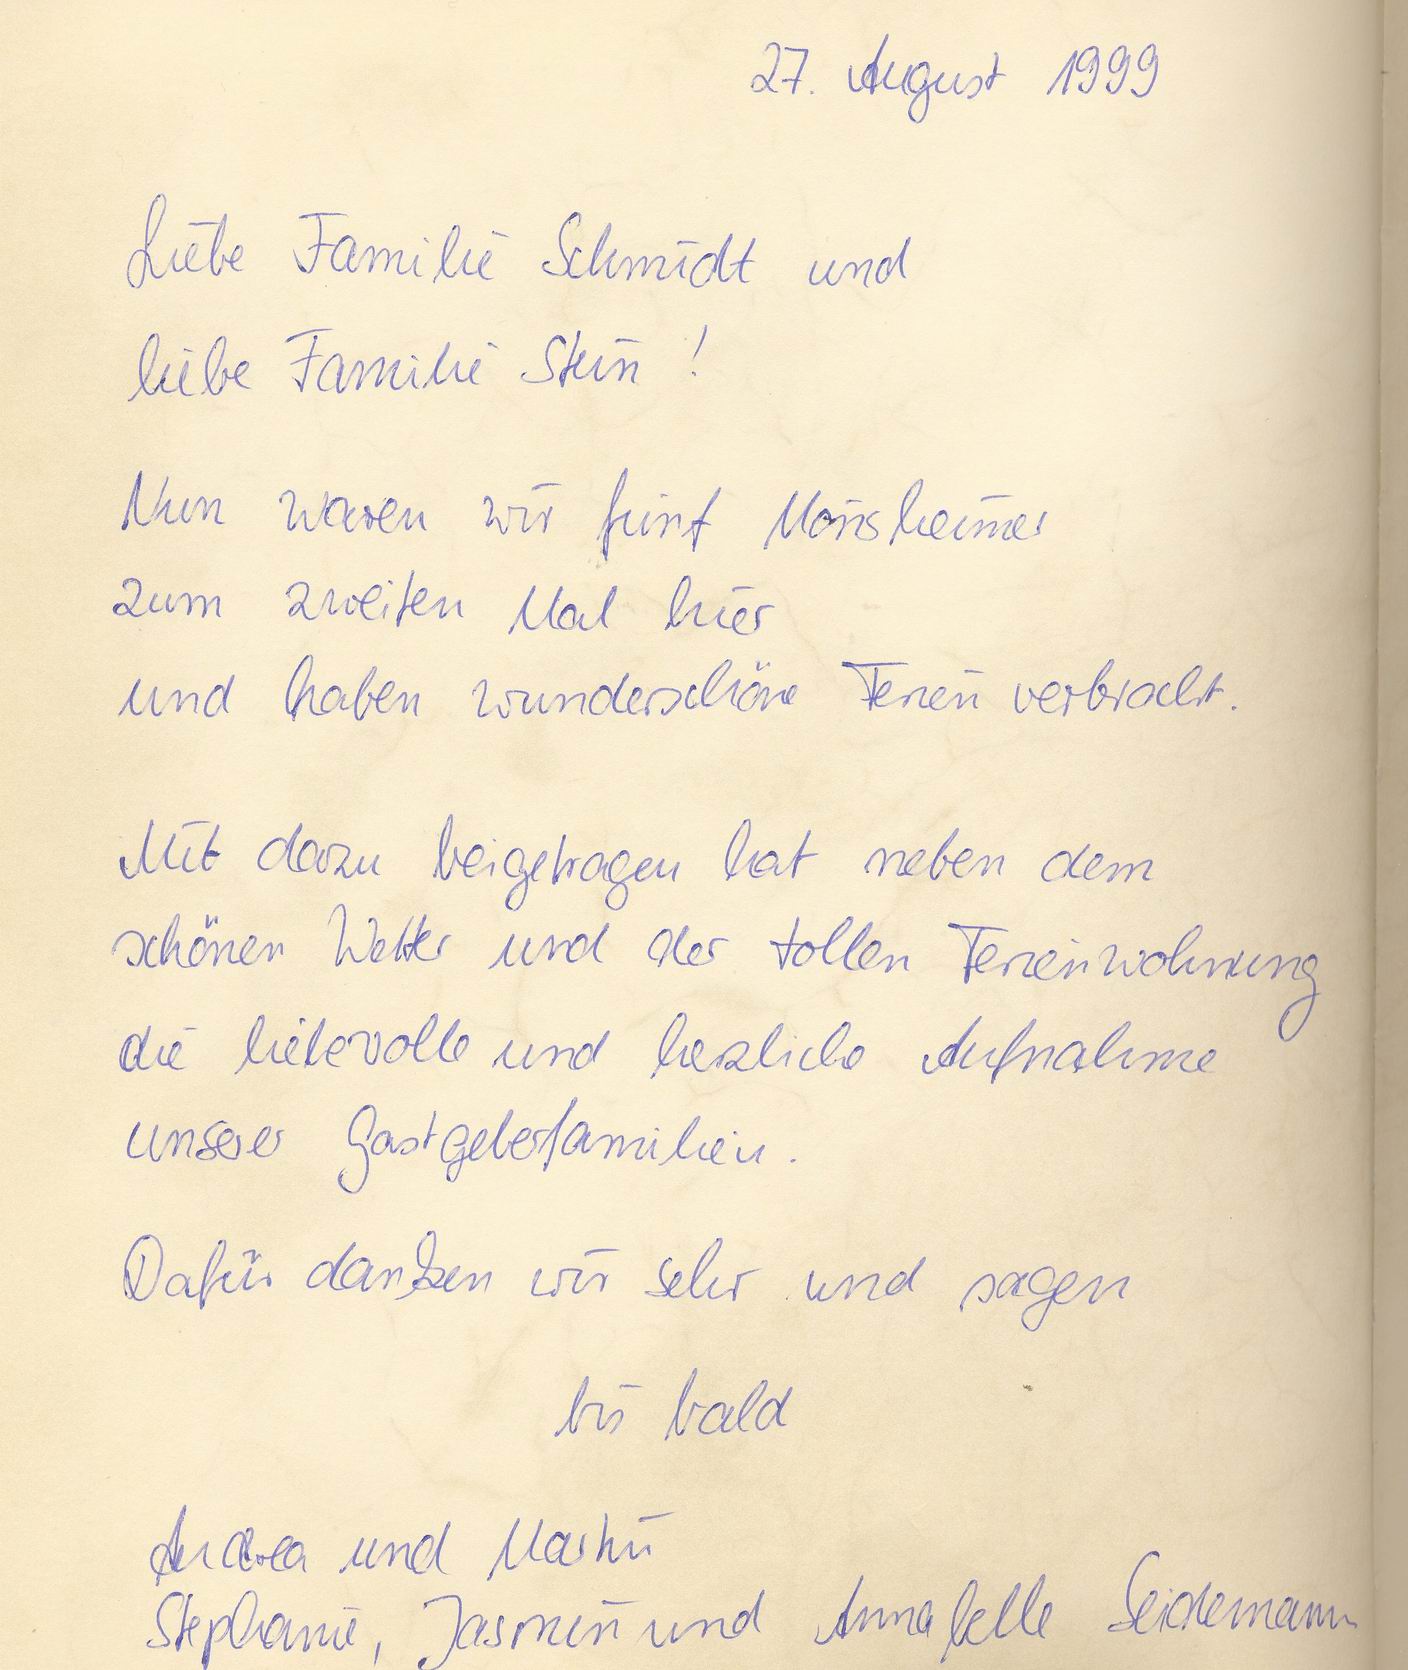 27. August 1999
Liebe Familie Schmidt und
liebe Familie Stein !
Nun waren wir fünf Mönsheimer
zum zweiten Mal hier
und haben wunderschöne Ferien verbracht.
Mit dazu beigetragen hat neben dem
schönen Wetter und der tollen Ferienwohnung
die liebevolle und herzliche Aufnahme
unserer Gastgeberfamilien.
Dafür danken wir sehr und sagen
bis bald
Andrea und Martin
Stephanie, Jasmin und Annabelle Seidemann